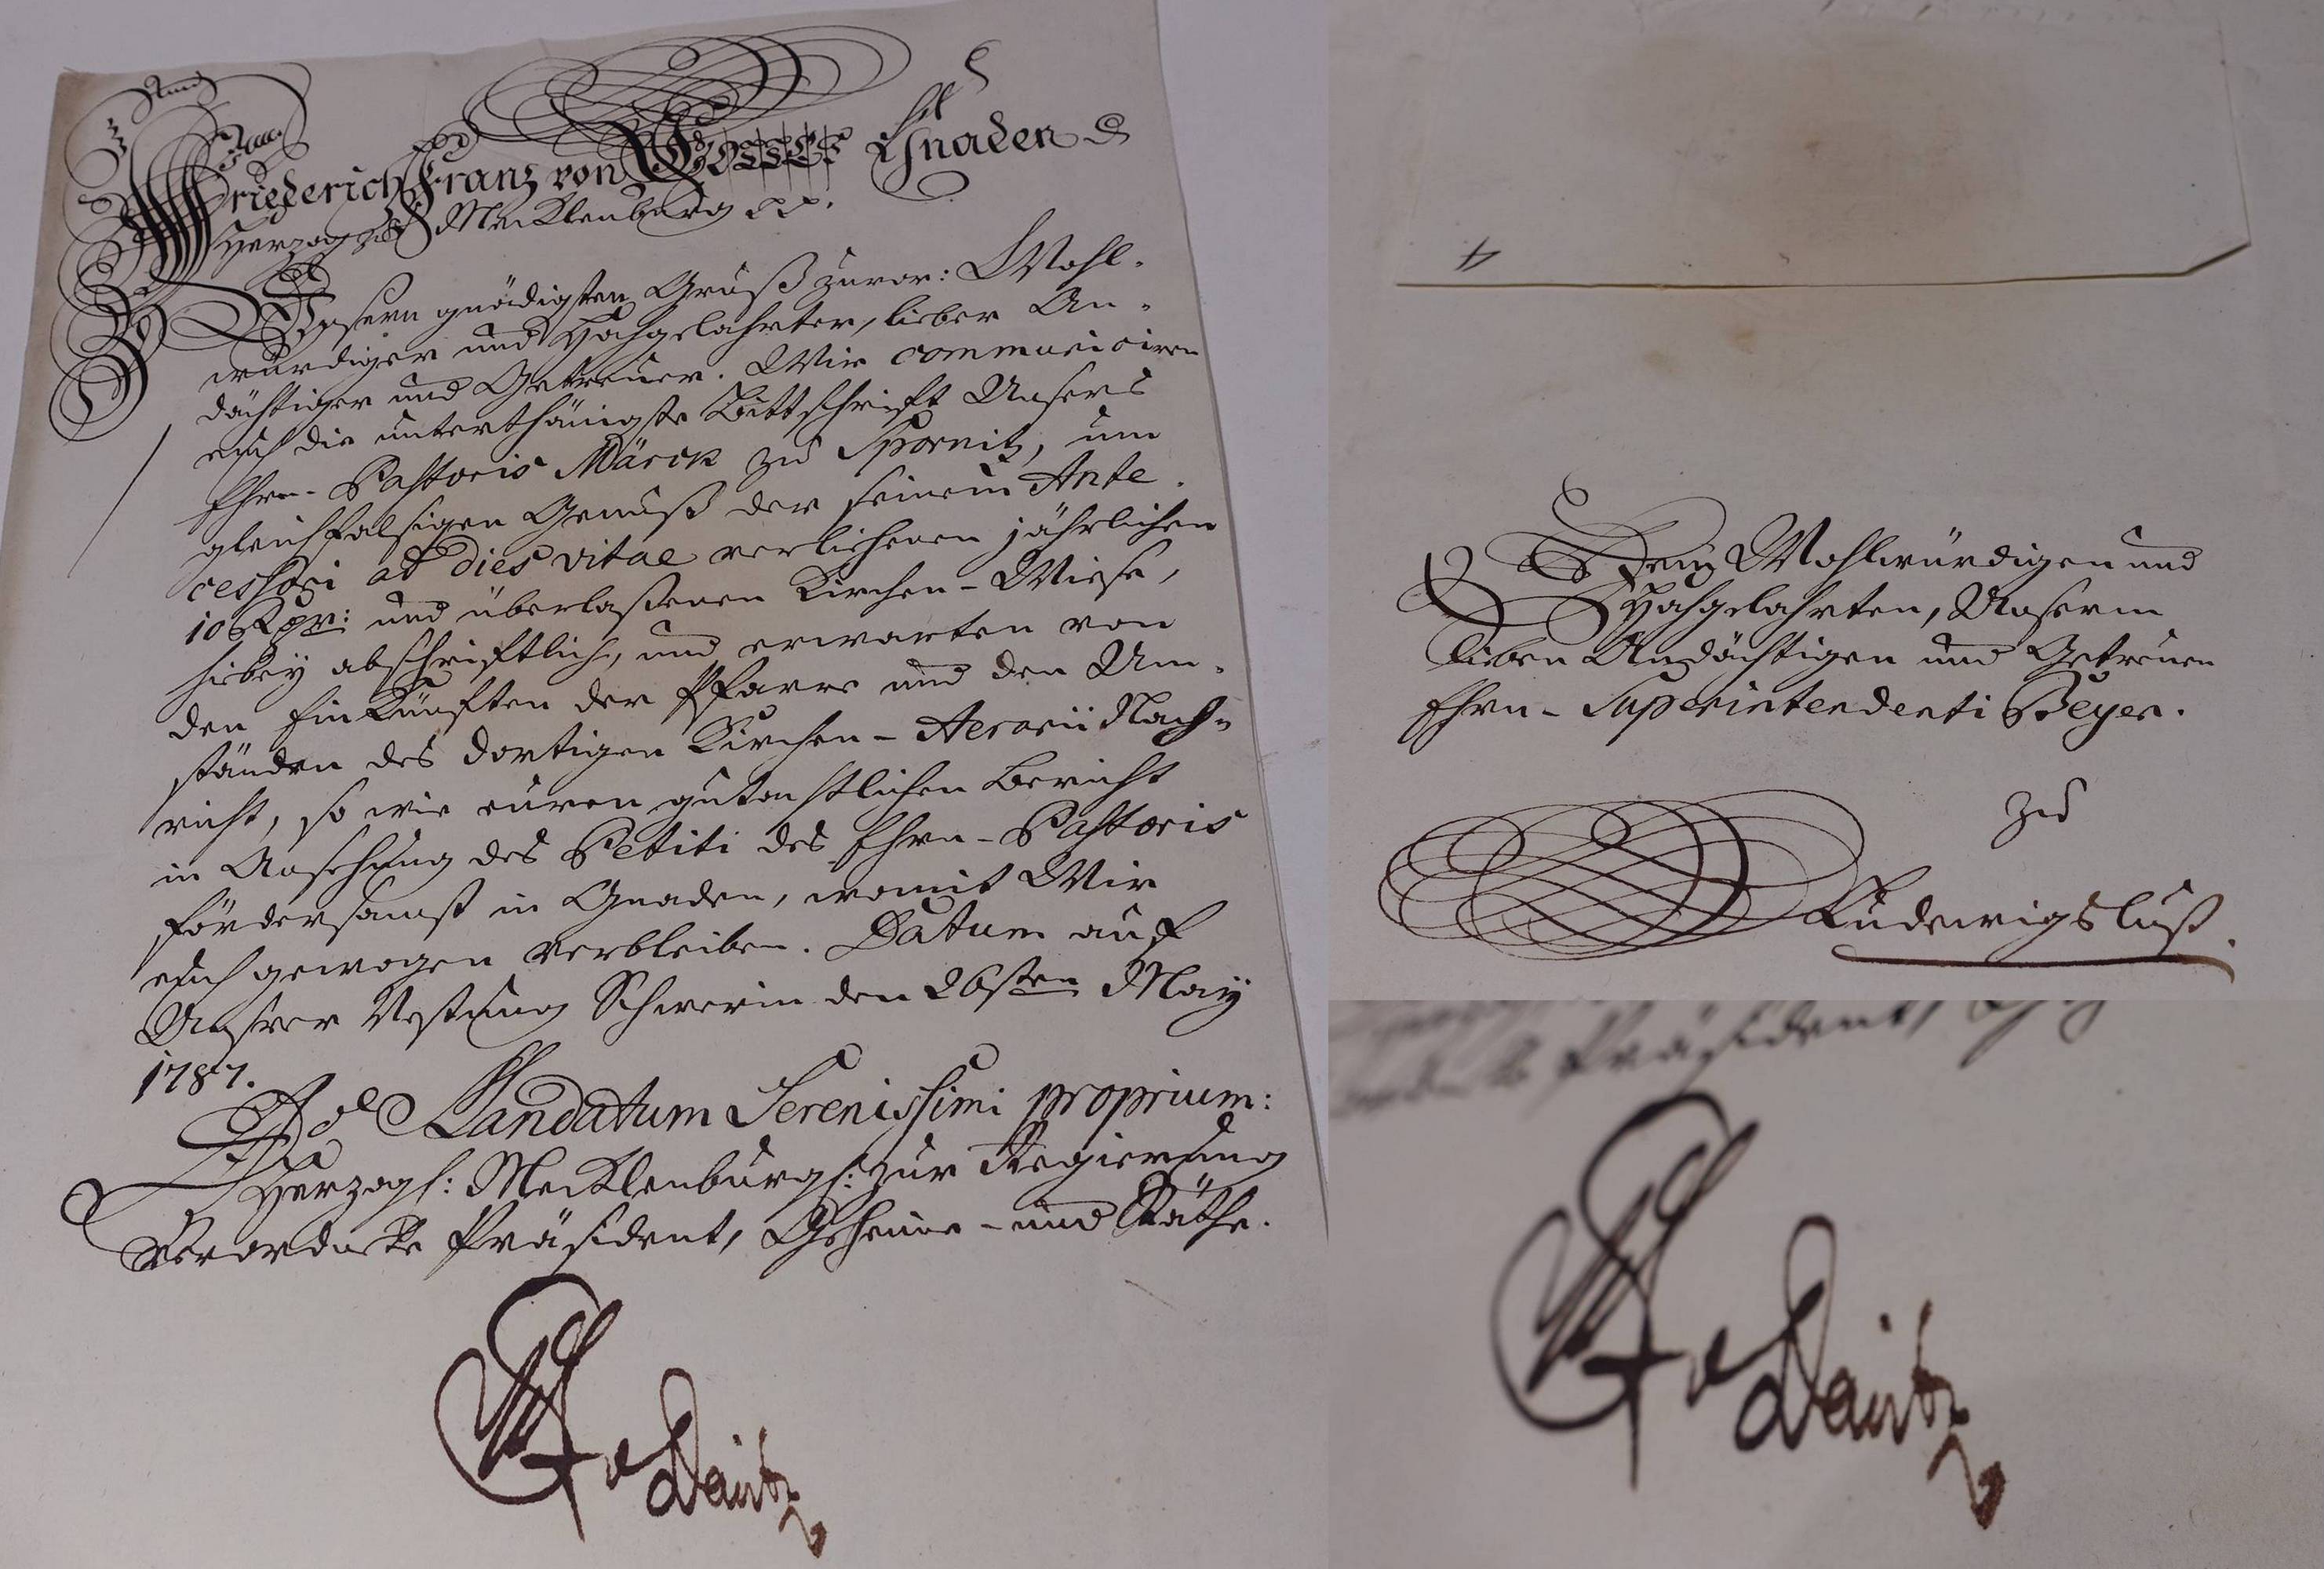 Friederich Franz von Gottes Gnaden
Herzog zu Mecklenburg pp.
Unsern gnädigsten Gruß zuvor: Wohl-
würdiger und Hochgelahrter, lieber An-
dächtiger und Getreuer. Wir communiciren
euch die unterthänigste Bittschrift Unsers
Ehrn- Pastoris Märck zu Spornitz, um
gleichfalsigen Genuß der seinem Ante-
cessori ad dies vitae verliehenen jährlichen
10 Rthlr: und überlaßenen Kirchen-Wiese,
hiebey abschriftlich, und erwarten von
den Einkünften der Pfarre und den Um-
ständen des dortigen Kirchen-Aerarii Nach-
richt, so wie euren gutachtlichen Bericht
in Ansehung des Petiti des Ehrn-Pastoris
fördersamst in Gnaden, womit Wir
euch gewogen verbleiben. Datum auf
Unsrer Vestung Schwerin den 26sten May
1787.
Ad Mandatum Serenissimi proprium:
Herzogl: Mecklenburgl: zur Regierung
Verordnete Präsident, Geheime- und Räthe.
4
Dem Wohlwürdigen und
Hochgelahrten, Unserm
lieben Andächtigen und Getreuen
Ehrn- Superintendenti Beyer.
zu
Ludewigslust.
Präsident,